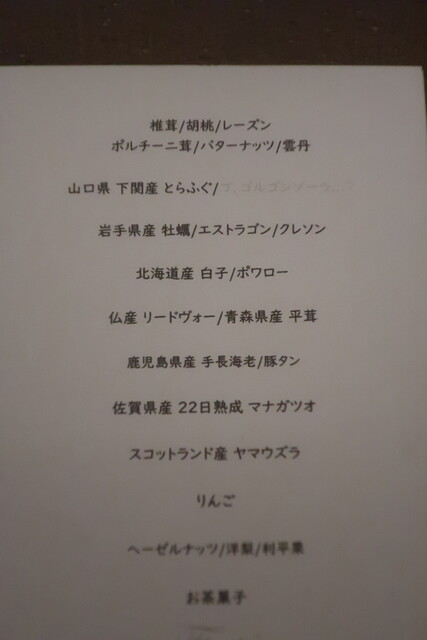 椎茸/胡桃/レーズン
ポルチーニ茸/バターナッツ/雲丹
山口県 下関産 とらふぐ/
岩手県産 牡蠣/エストラゴン/クレソン
北海道産 白子/ポワロー
仏産 リードヴォー/青森県産 平茸
鹿児島県産 手長海老/豚タン
佐賀県産 22日熟成 マナガツオ
スコットランド産 ヤマウズラ
りんご
ヘーゼルナッツ/洋梨/利平栗
お茶菓子